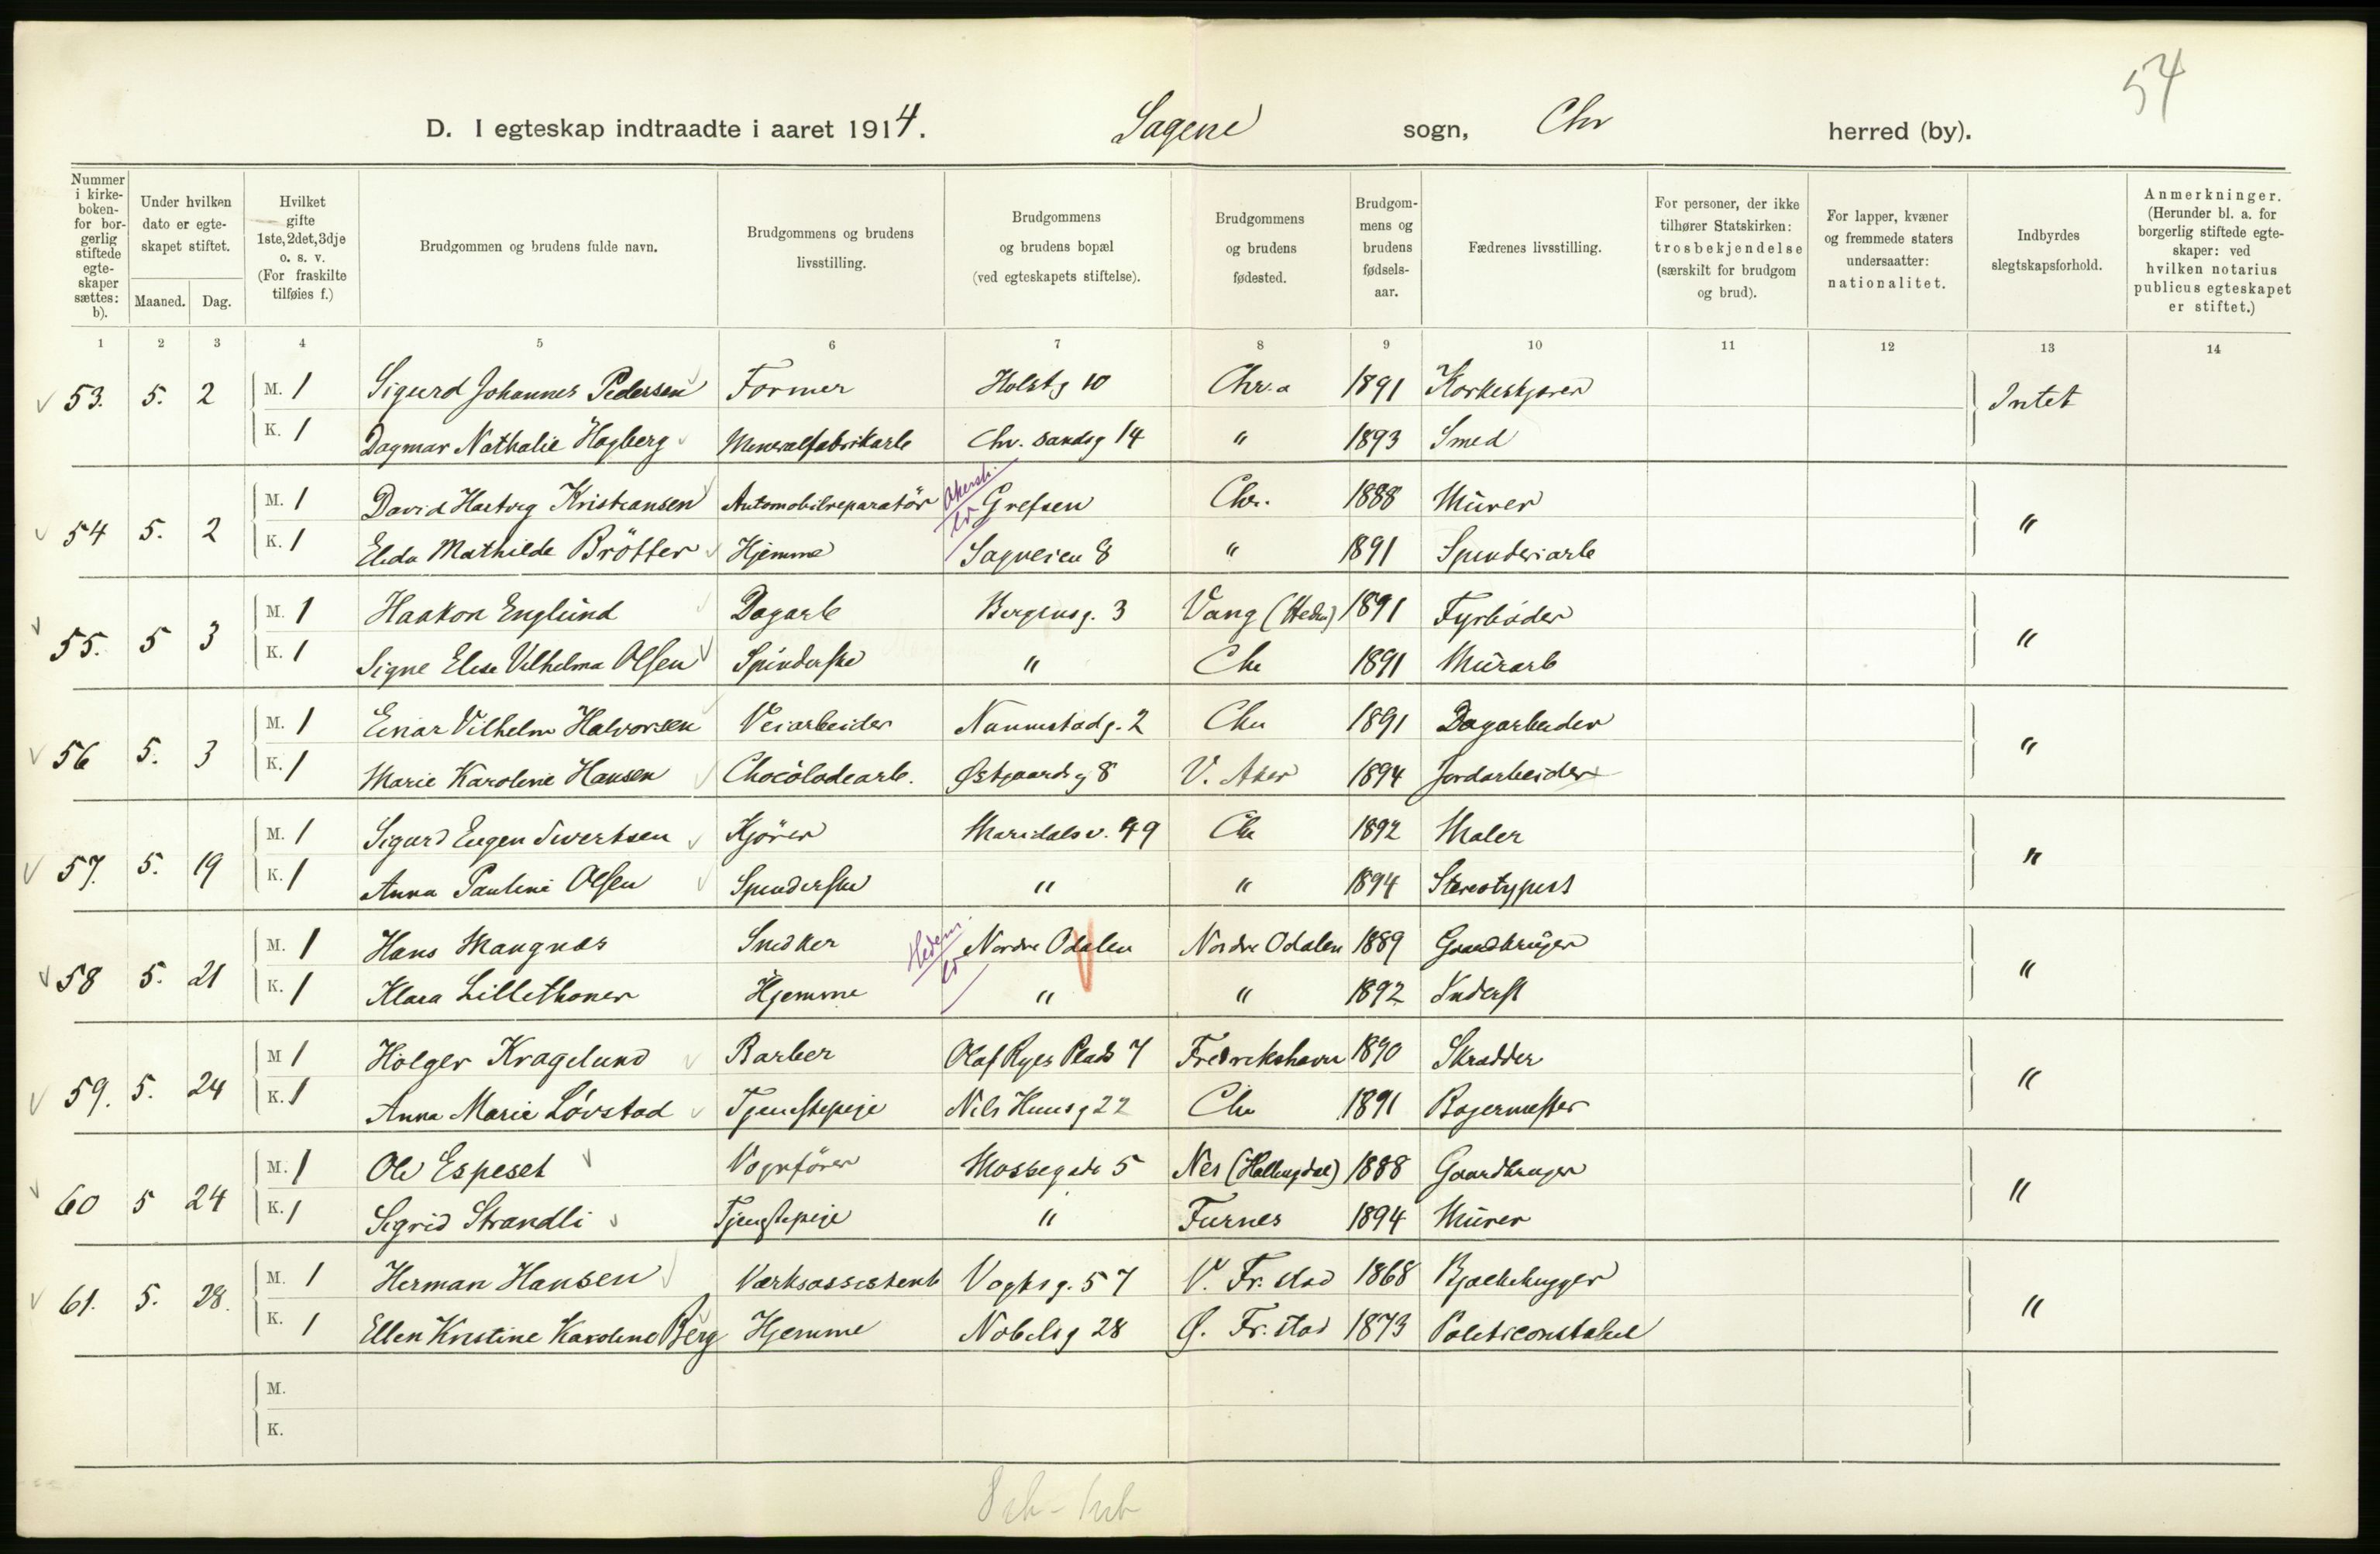 54
D. I egteskap indtraadte i aaret 1914. Sagene sogn, Chr herred (by).
Nummer i kirke-boken- for bor-gerlig stiftede egte-skaper sættes: b).
Under hvilken dato er egte-skapet stiftet.
Maaned. Dag.
Hvilket gifte 1ste, 2det, 3dje o. s. v. (For fraskilte tilføies f.)
Brudgommen og brudens fulde navn.
Brudgommens og brudens livsstilling.
Brudgommens og brudens bopæl (ved egteskapets stiftelse).
Brudgommens og brudens fødested.
Brudgom-mens og brudens fødsels-aar.
Fædrenes livsstilling.
For personer, der ikke tilhører Statskirken: trosbekjendelse (særskilt for brudgom og brud).
For lapper, kvæner og fremmede staters undersaatter: nationalitet.
Indbyrdes slegtskapsforhold.
Anmerkninger. (Herunder bl. a. for borgerlig stiftede egte-skaper: ved hvilken notarius publicus egteskapet er stiftet.)
1 2 3 4 5 6 7 8 9 10 11 12 13 14
53. 5. 2 M. 1 Sigurd Johannes Pedersen Former Holstg 10 Chr.a 1891 Korkeskjærer Intet
K. 1 Dagmar Nathalie Hagberg Mineralfabrikarb Chr. sandsg 14 " 1893 Smed
54 5. 2 M. 1 David Hartvig Kristiansen Automobilreparatör Akersh. Grefsen Chr. 1888 Murer "
K. 1 Elida Mathilde Brötter Hjemme Sagveien 8 " 1891 Spinderiarb
55. 5 3 M. 1 Haakon Englund Dagarb Bergensg. 3 Vang (Hedm) 1891 Fyrbøder "
K. 1 Signe Elise Vilhelma Olsen Spinderske " Chr 1891 Murarb
56 5. 3 M. 1 Einar Vilhelm Halvorsen Veiarbeider Nannestadg. 2 Chr 1891 Dagarbeider "
K. 1 Marie Karoline Hansen Chocoladearb. Østgaardsg 8 V. Aker 1894 Jordarbeider
57. 5. 19 M. 1 Sigurd Eugen Sivertsen Kjörer Maridalsv. 49 Chr 1892 Maler "
K. 1 Anna Pauline Olsen Spinderske " " 1894 Stereotypist
58 5. 21 M. 1 Hans Mangnæs Snedker Hedem. Nordre Odalen Nordre Odalen 1889 Gaardbruger "
K. 1 Klara Lillethoner Hjemme " " 1892 Inderst
59. 5. 24 M 1 Holger Kragelund Barber Olaf Ryes Plads 7 Fredrikshavn 1890 Skrædder "
K. 1 Anna Marie Lövstad Tjenestepige Nils Huusg 22 Chr 1891 Bagermester
60 5 24 M. 1 Ole Espeset Vognfører Mossegata 5 Nes (Hallingdal) 1888 Gaardbruger "
K. 1 Sigrid Strandli Tjenestepige " Furnes 1894 Murer
61. 5. 28. M. 1 Herman Hansen Værksassistent Vogtsg. 57 V. Fr. stad 1868 Bjælkehugger "
K. 1 Ellen Kristine Karoline Berg Hjemme Nobelsg 28 Ø. Fr. stad 1873 Politiconstabel
M.
K.